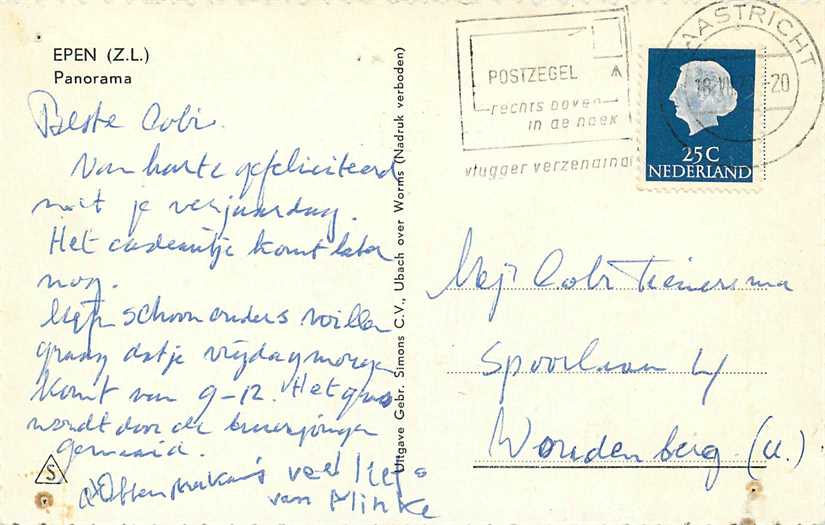 EPEN (Z.L.)
Panorama
Beste Cobi.
Van harte gefeliciteerd
met je verjaardag.
Het cadeautje komt later
nog.
Mijn schoonouders willen
graag dat je vrijdagmorgen
komt van 9-12. Het gras
wordt door de buurjongen
gemaaid.
veel liefs
van Minke
Uitgave Gebr. Simons C.V., Ubach over Worms (Nadruk verboden)
S
POSTZEGEL
rechts boven
in de hoek
vlugger verzending
MAASTRICHT
18 VII
20
25C
NEDERLAND
Mej. Cobi
Spoorlaan 4
Woudenberg. (U.)